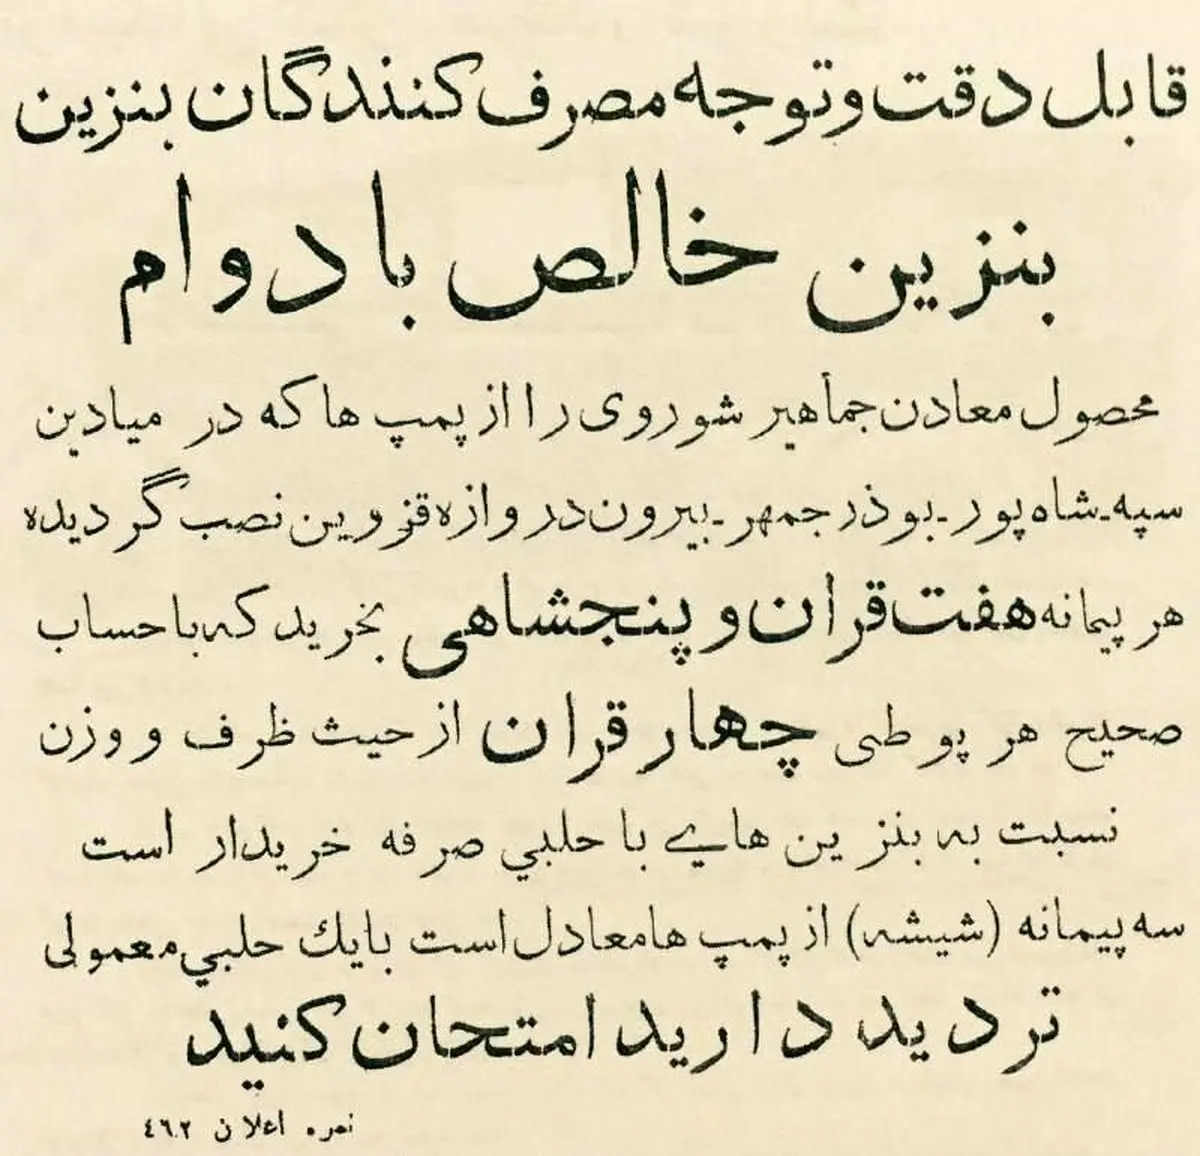 قابل دقت و توجه مصرف کنندگان بنزین
بنزین خالص بادوام
محصول معادن جمأهیر شوروی را از پمپ ها که در میادین
سپه ـ شاه پور ـ بوذرجمهر ـ بیرون دروازه قزوین نصب گردیده
هر پیمانه هفت قران و پنجشاهی بخرید که با حساب
صحیح هر پوطی چهار قران از حیث ظرف و وزن
نسبت به بنزین هایے با حلبي صرفه خریدار است
سه پیمانه (شیشه) از پمپ ها معادل است با یك حلبي معمولی
تردید دارید امتحان کنید
نمره اعلان ٤٦٢